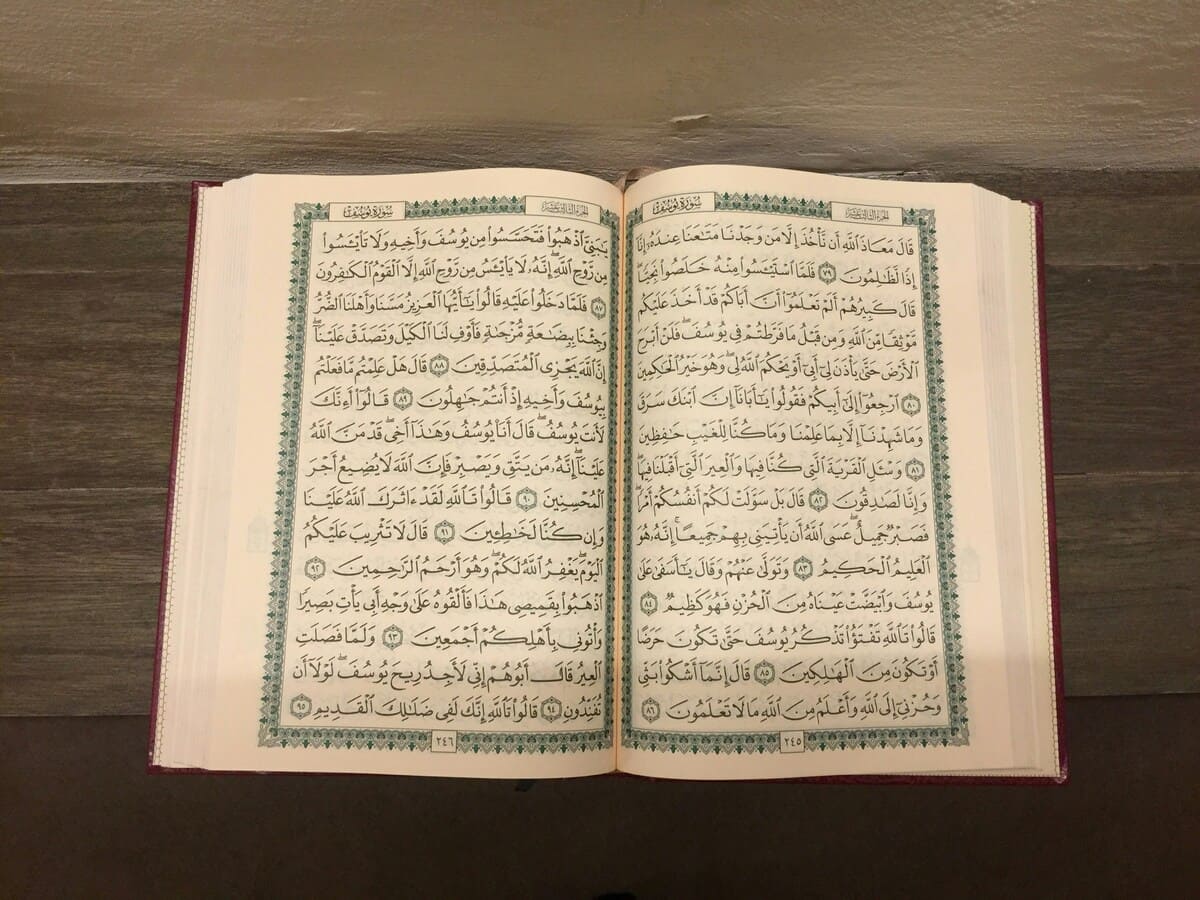 الجزء الثالث عشر
سورة يوسف
قَالَ مَعَاذَ ٱللَّهِ أَن نَّأۡخُذَ إِلَّا مَن وَجَدۡنَا مَتَٰعَنَا عِندَهُۥٓ إِنَّآ
إِذٗا لَّظَٰلِمُونَ ٧٩ فَلَمَّا ٱسۡتَيۡـَٔسُواْ مِنۡهُ خَلَصُواْ نَجِيّٗاۖ
قَالَ كَبِيرُهُمۡ أَلَمۡ تَعۡلَمُوٓاْ أَنَّ أَبَاكُمۡ قَدۡ أَخَذَ عَلَيۡكُم
مَّوۡثِقٗا مِّنَ ٱللَّهِ وَمِن قَبۡلُ مَا فَرَّطتُمۡ فِي يُوسُفَۖ فَلَنۡ أَبۡرَحَ
ٱلۡأَرۡضَ حَتَّىٰ يَأۡذَنَ لِيٓ أَبِيٓ أَوۡ يَحۡكُمَ ٱللَّهُ لِيۖ وَهُوَ خَيۡرُ ٱلۡحَٰكِمِينَ
٨٠ ٱرۡجِعُوٓاْ إِلَىٰٓ أَبِيكُمۡ فَقُولُواْ يَٰٓأَبَانَآ إِنَّ ٱبۡنَكَ سَرَقَ
وَمَا شَهِدۡنَآ إِلَّا بِمَا عَلِمۡنَا وَمَا كُنَّا لِلۡغَيۡبِ حَٰفِظِينَ
٨١ وَسۡـَٔلِ ٱلۡقَرۡيَةَ ٱلَّتِي كُنَّا فِيهَا وَٱلۡعِيرَ ٱلَّتِيٓ أَقۡبَلۡنَا فِيهَاۖ
وَإِنَّا لَصَٰدِقُونَ ٨٢ قَالَ بَلۡ سَوَّلَتۡ لَكُمۡ أَنفُسُكُمۡ أَمۡرٗاۖ
فَصَبۡرٞ جَمِيلٌۖ عَسَى ٱللَّهُ أَن يَأۡتِيَنِي بِهِمۡ جَمِيعًاۚ إِنَّهُۥ هُوَ
ٱلۡعَلِيمُ ٱلۡحَكِيمُ ٨٣ وَتَوَلَّىٰ عَنۡهُمۡ وَقَالَ يَٰٓأَسَفَىٰ عَلَىٰ
يُوسُفَ وَٱبۡيَضَّتۡ عَيۡنَاهُ مِنَ ٱلۡحُزۡنِ فَهُوَ كَظِيمٞ ٨٤
قَالُواْ تَٱللَّهِ تَفۡتَؤُاْ تَذۡكُرُ يُوسُفَ حَتَّىٰ تَكُونَ حَرَضًا
أَوۡ تَكُونَ مِنَ ٱلۡهَٰلِكِينَ ٨٥ قَالَ إِنَّمَآ أَشۡكُواْ بَثِّي
وَحُزۡنِيٓ إِلَى ٱللَّهِ وَأَعۡلَمُ مِنَ ٱللَّهِ مَا لَا تَعۡلَمُونَ ٨٦
٢٤٥
الجزء الثالث عشر
سورة يوسف
يَٰبَنِيَّ ٱذۡهَبُواْ فَتَحَسَّسُواْ مِن يُوسُفَ وَأَخِيهِ وَلَا تَاْيۡـَٔسُواْ
مِن رَّوۡحِ ٱللَّهِۖ إِنَّهُۥ لَا يَاْيۡـَٔسُ مِن رَّوۡحِ ٱللَّهِ إِلَّا ٱلۡقَوۡمُ ٱلۡكَٰفِرُونَ
٨٧ فَلَمَّا دَخَلُواْ عَلَيۡهِ قَالُواْ يَٰٓأَيُّهَا ٱلۡعَزِيزُ مَسَّنَا وَأَهۡلَنَا ٱلضُّرُّ
وَجِئۡنَا بِبِضَٰعَةٖ مُّزۡجَىٰةٖ فَأَوۡفِ لَنَا ٱلۡكَيۡلَ وَتَصَدَّقۡ عَلَيۡنَآۖ
إِنَّ ٱللَّهَ يَجۡزِي ٱلۡمُتَصَدِّقِينَ ٨٨ قَالَ هَلۡ عَلِمۡتُم مَّا فَعَلۡتُم
بِيُوسُفَ وَأَخِيهِ إِذۡ أَنتُمۡ جَٰهِلُونَ ٨٩ قَالُوٓاْ أَءِنَّكَ
لَأَنتَ يُوسُفُۖ قَالَ أَنَا۠ يُوسُفُ وَهَٰذَآ أَخِيۖ قَدۡ مَنَّ ٱللَّهُ
عَلَيۡنَآۖ إِنَّهُۥ مَن يَتَّقِ وَيَصۡبِرۡ فَإِنَّ ٱللَّهَ لَا يُضِيعُ أَجۡرَ
ٱلۡمُحۡسِنِينَ ٩٠ قَالُواْ تَٱللَّهِ لَقَدۡ ءَاثَرَكَ ٱللَّهُ عَلَيۡنَا
وَإِن كُنَّا لَخَٰطِـِٔينَ ٩١ قَالَ لَا تَثۡرِيبَ عَلَيۡكُمُ
ٱلۡيَوۡمَۖ يَغۡفِرُ ٱللَّهُ لَكُمۡۖ وَهُوَ أَرۡحَمُ ٱلرَّٰحِمِينَ ٩٢
ٱذۡهَبُواْ بِقَمِيصِي هَٰذَا فَأَلۡقُوهُ عَلَىٰ وَجۡهِ أَبِي يَأۡتِ بَصِيرٗا
وَأۡتُونِي بِأَهۡلِكُمۡ أَجۡمَعِينَ ٩٣ وَلَمَّا فَصَلَتِ
ٱلۡعِيرُ قَالَ أَبُوهُمۡ إِنِّي لَأَجِدُ رِيحَ يُوسُفَۖ لَوۡلَآ أَن
تُفَنِّدُونِ ٩٤ قَالُواْ تَٱللَّهِ إِنَّكَ لَفِي ضَلَٰلِكَ ٱلۡقَدِيمِ ٩٥
٢٤٦